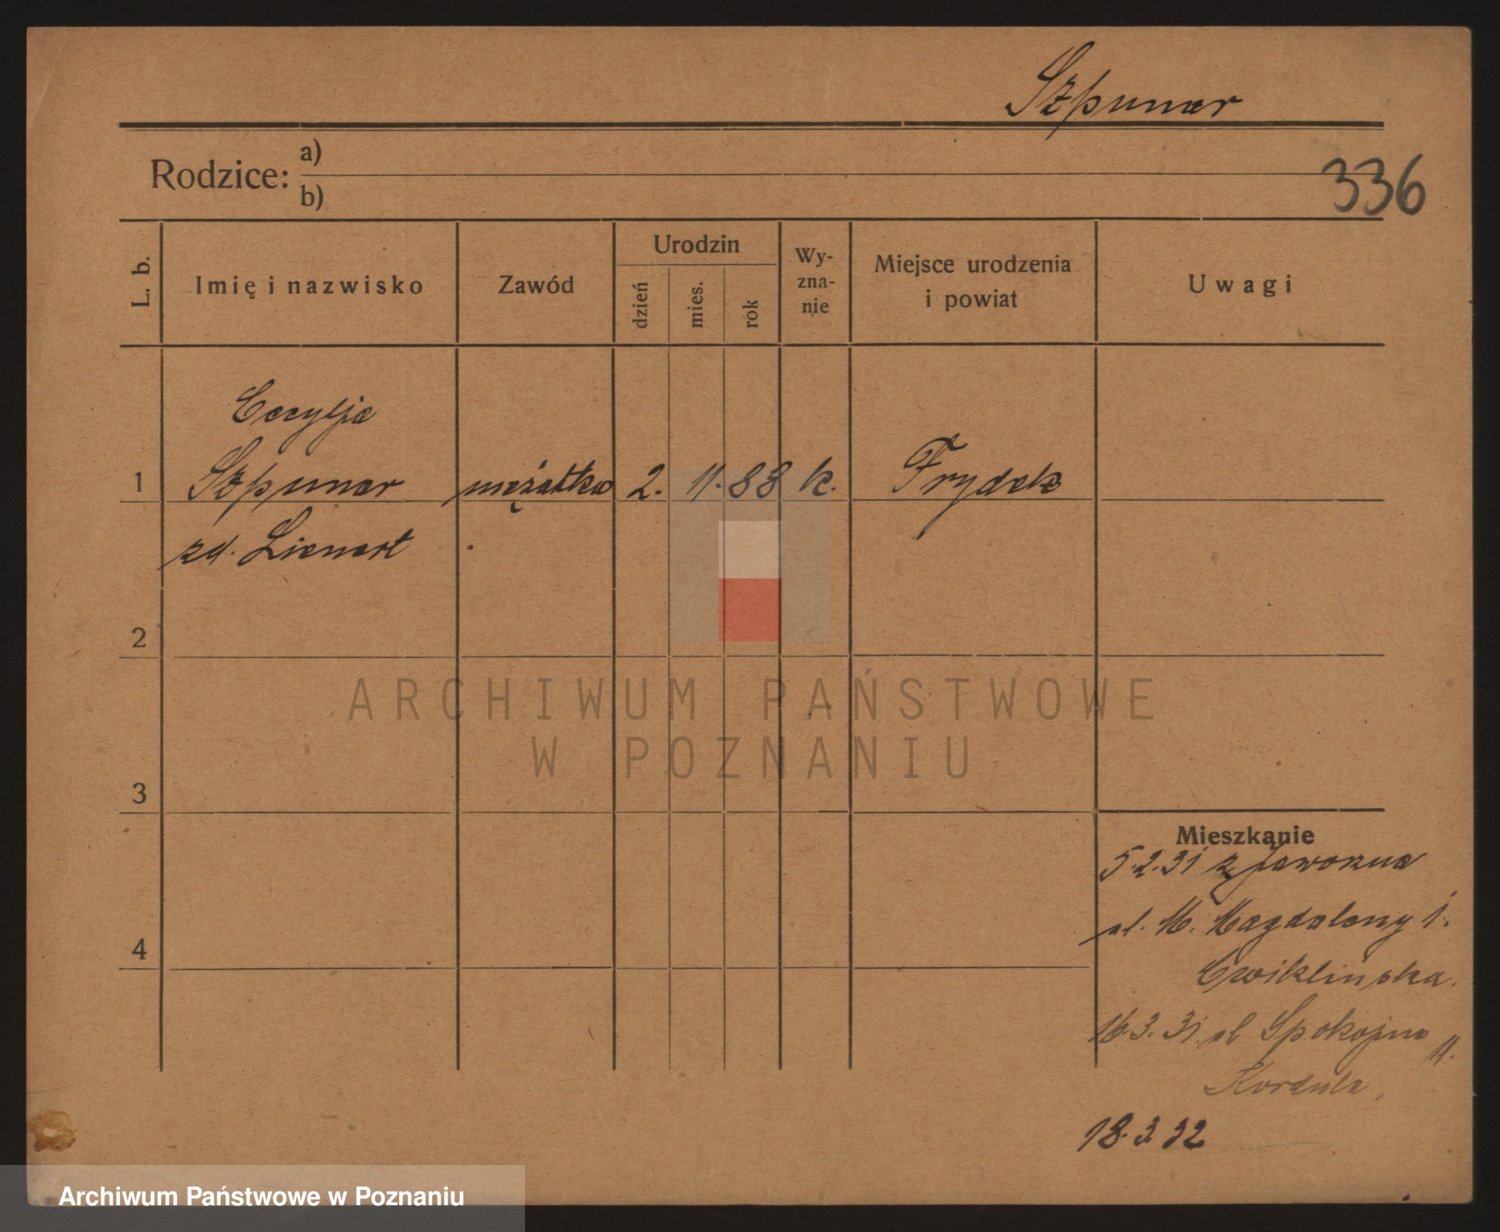 Szpunar
Rodzice: a)
b)
336
L. b.
Imię i nazwisko
Zawód
Urodzin
dzień
mies.
rok
Wy-
zna-
nie
Miejsce urodzenia
i powiat
Uwagi
Cecylja
1 Szpunar mężatka 2. 11. 88 k. Frydek
zd. Lienert
2
ARCHIWUM PAŃSTWOWE
W POZNANIU
3
Mieszkanie
5.2.31 z Jaworzna
ul. M. Magdaleny 1.
Ćwiklińska.
16.3.31 ul Spokojna 11.
Kordula,
4
18.3.32
Archiwum Państwowe w Poznaniu